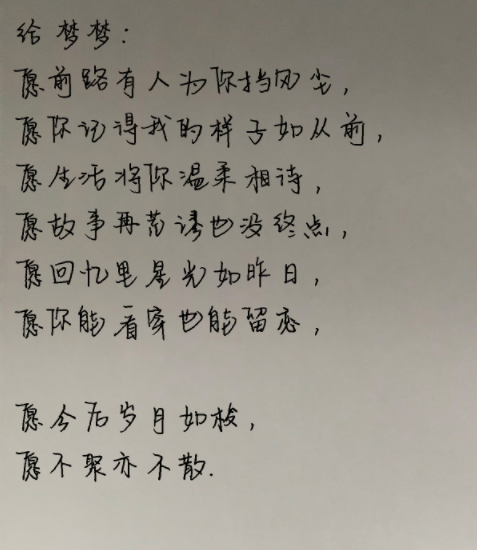 给梦梦:
愿前路有人为你挡风尘,
愿你记得我的样子如从前,
愿生活将你温柔相待,
愿故事再荒诱也没终点,
愿回忆里星光如昨日,
愿你能看穿也能留恋,
愿今后岁月如梭,
愿不聚亦不散.